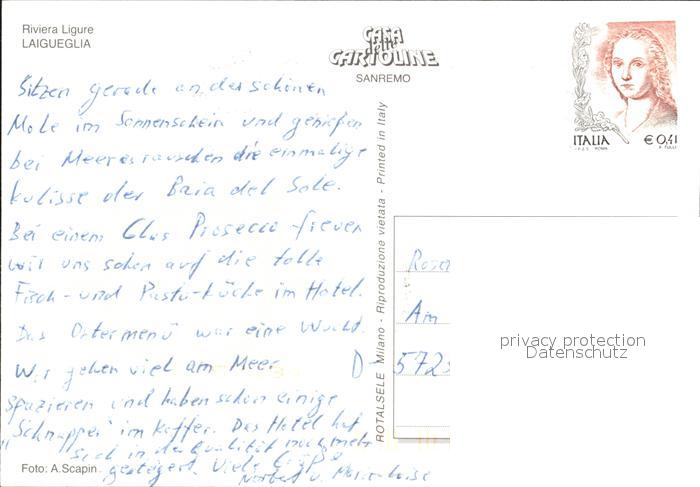 Riviera Ligure
LAIGUEGLIA
CASA
delle
CARTOLINE
SANREMO
ITALIA
€ 0,41
I.P.Z.S. ROMA
P. TULLI
Sitzen gerade an der schönen
Mole im Sonnenschein und genießen
bei Meeresrauschen die einmalige
Kulisse der Baia del Sole.
Bei einem Glas Prosecco freuen
wir uns schon auf die tolle
Fisch- und Pasta-Küche im Hotel.
Das Ostermenü war eine Wucht.
Wir gehen viel am Meer
spazieren und haben schon einige
"Schnapper" im Koffer. Das Hotel hat
sich in der Qualität nochmals
gesteigert. Viele Grüße
Norbert u. Marie-Luise
Foto: A.Scapin
ROTALSELE Milano - Riproduzione vietata - Printed in Italy
Am
D-572
privacy protection
Datenschutz